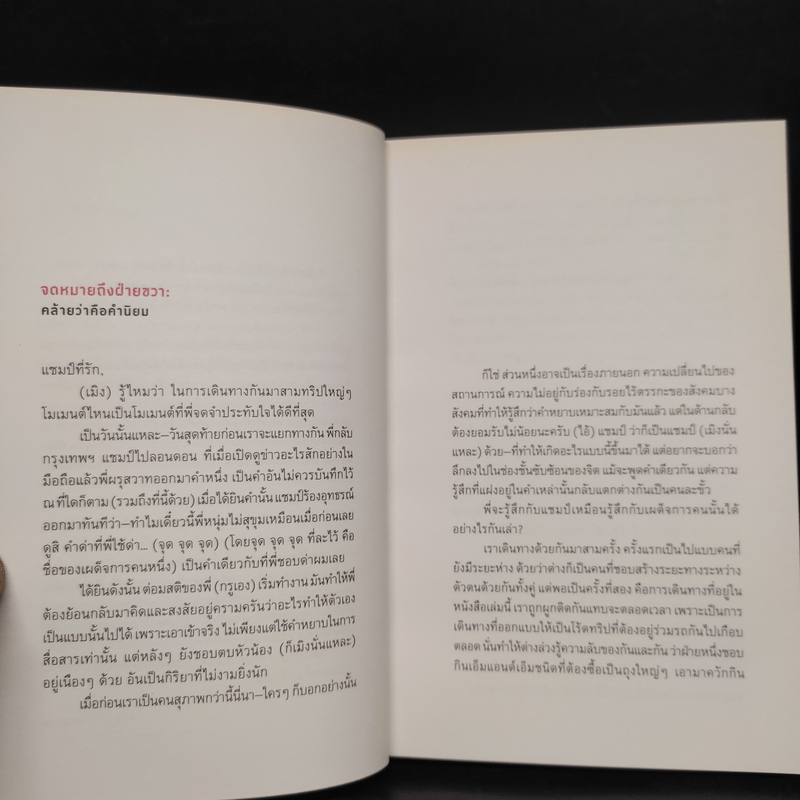 จดหมายถึงฝ่ายขวา:
คล้ายว่าคือคำนิยม
แชมป์ที่รัก,
(เมิง) รู้ไหมว่า ในการเดินทางกันมาสามทริปใหญ่ๆ
โมเมนต์ไหนเป็นโมเมนต์ที่พี่จดจำประทับใจได้ดีที่สุด
เป็นวันนั้นแหละ—วันสุดท้ายก่อนเราจะแยกทางกัน พี่กลับ
กรุงเทพฯ แชมป์ไปลอนดอน ที่เมื่อเปิดดูข่าวอะไรสักอย่างใน
มือถือแล้วพี่ผรุสวาทออกมาคำหนึ่ง เป็นคำอันไม่ควรบันทึกไว้
ณ ที่ใดก็ตาม (รวมถึงที่นี้ด้วย) เมื่อได้ยินคำนั้น แชมป์ร้องอุทธรณ์
ออกมาทันทีว่า—ทำไมเดี๋ยวนี้พี่หนุ่มไม่สุขุมเหมือนเมื่อก่อนเลย
ดูสิ คำด่าที่พี่ใช้ด่า... (จุด จุด จุด) (โดยจุด จุด จุด ที่ละไว้ คือ
ชื่อของเผด็จการคนหนึ่ง) เป็นคำเดียวกับที่พี่ชอบด่าผมเลย
ได้ยินดังนั้น ต่อมสติของพี่ (กรูเอง) เริ่มทำงาน มันทำให้พี่
ต้องย้อนกลับมาคิดและสงสัยอยู่ครามครันว่าอะไรทำให้ตัวเอง
เป็นแบบนั้นไปได้ เพราะเอาเข้าจริง ไม่เพียงแต่ใช้คำหยาบในการ
สื่อสารเท่านั้น แต่หลังๆ ยังชอบตบหัวน้อง (ก็เมิงนั่นแหละ)
อยู่เนืองๆ ด้วย อันเป็นกิริยาที่ไม่งามยิ่งนัก
เมื่อก่อนเราเป็นคนสุภาพกว่านี้นี่นา—ใครๆ ก็บอกอย่างนั้น
ก็ใช่ ส่วนหนึ่งอาจเป็นเรื่องภายนอก ความเปลี่ยนไปของ
สถานการณ์ ความไม่อยู่กับร่องกับรอยไร้ตรรกะของสังคมบาง
สังคมที่ทำให้รู้สึกว่าคำหยาบเหมาะสมกับมันแล้ว แต่ในด้านกลับ
ต้องยอมรับไม่น้อยนะครับ (ไอ้) แชมป์ ว่าก็เป็นแชมป์ (เมิงนั่น
แหละ) ด้วย—ที่ทำให้เกิดอะไรแบบนี้ขึ้นมาได้ แต่อยากจะบอกว่า
ลึกลงไปในช่องชั้นซับซ้อนของจิต แม้จะพูดคำเดียวกัน แต่ความ
รู้สึกที่แฝงอยู่ในคำเหล่านั้นกลับแตกต่างกันเป็นคนละขั้ว
พี่จะรู้สึกกับแชมป์เหมือนรู้สึกกับเผด็จการคนนั้นได้
อย่างไรกันเล่า?
เราเดินทางด้วยกันมาสามครั้ง ครั้งแรกเป็นไปแบบคนที่
ยังมีระยะห่าง ด้วยว่าต่างก็เป็นคนที่ชอบสร้างระยะทางระหว่าง
ตัวตนด้วยกันทั้งคู่ แต่พอเป็นครั้งที่สอง คือการเดินทางที่อยู่ใน
หนังสือเล่มนี้ เราถูกผูกติดกันแทบจะตลอดเวลา เพราะเป็นการ
เดินทางที่ออกแบบให้เป็นโร้ดทริปที่ต้องอยู่ร่วมรถกันไปเกือบ
ตลอด นั่นทำให้ต่างล่วงรู้ความลับของกันและกัน ว่าฝ่ายหนึ่งชอบ
กินเอ็มแอนด์เอ็มชนิดที่ต้องซื้อเป็นถุงใหญ่ๆ เอามาควักกิน